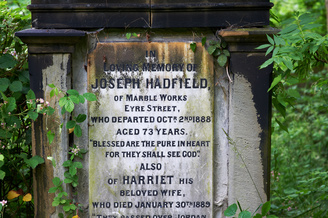 IN
LOVING MEMORY OF
JOSEPH HADFIELD,
OF MARBLE WORKS
EYRE STREET,
WHO DEPARTED OCTR 2ND 1888
AGED 73 YEARS.
"BLESSED ARE THE PURE IN HEART
FOR THEY SHALL SEE GOD."
ALSO
OF HARRIET HIS
BELOVED WIFE,
WHO DIED JANUARY 30TH 1889
"THEY PASSED OVER JORDAN